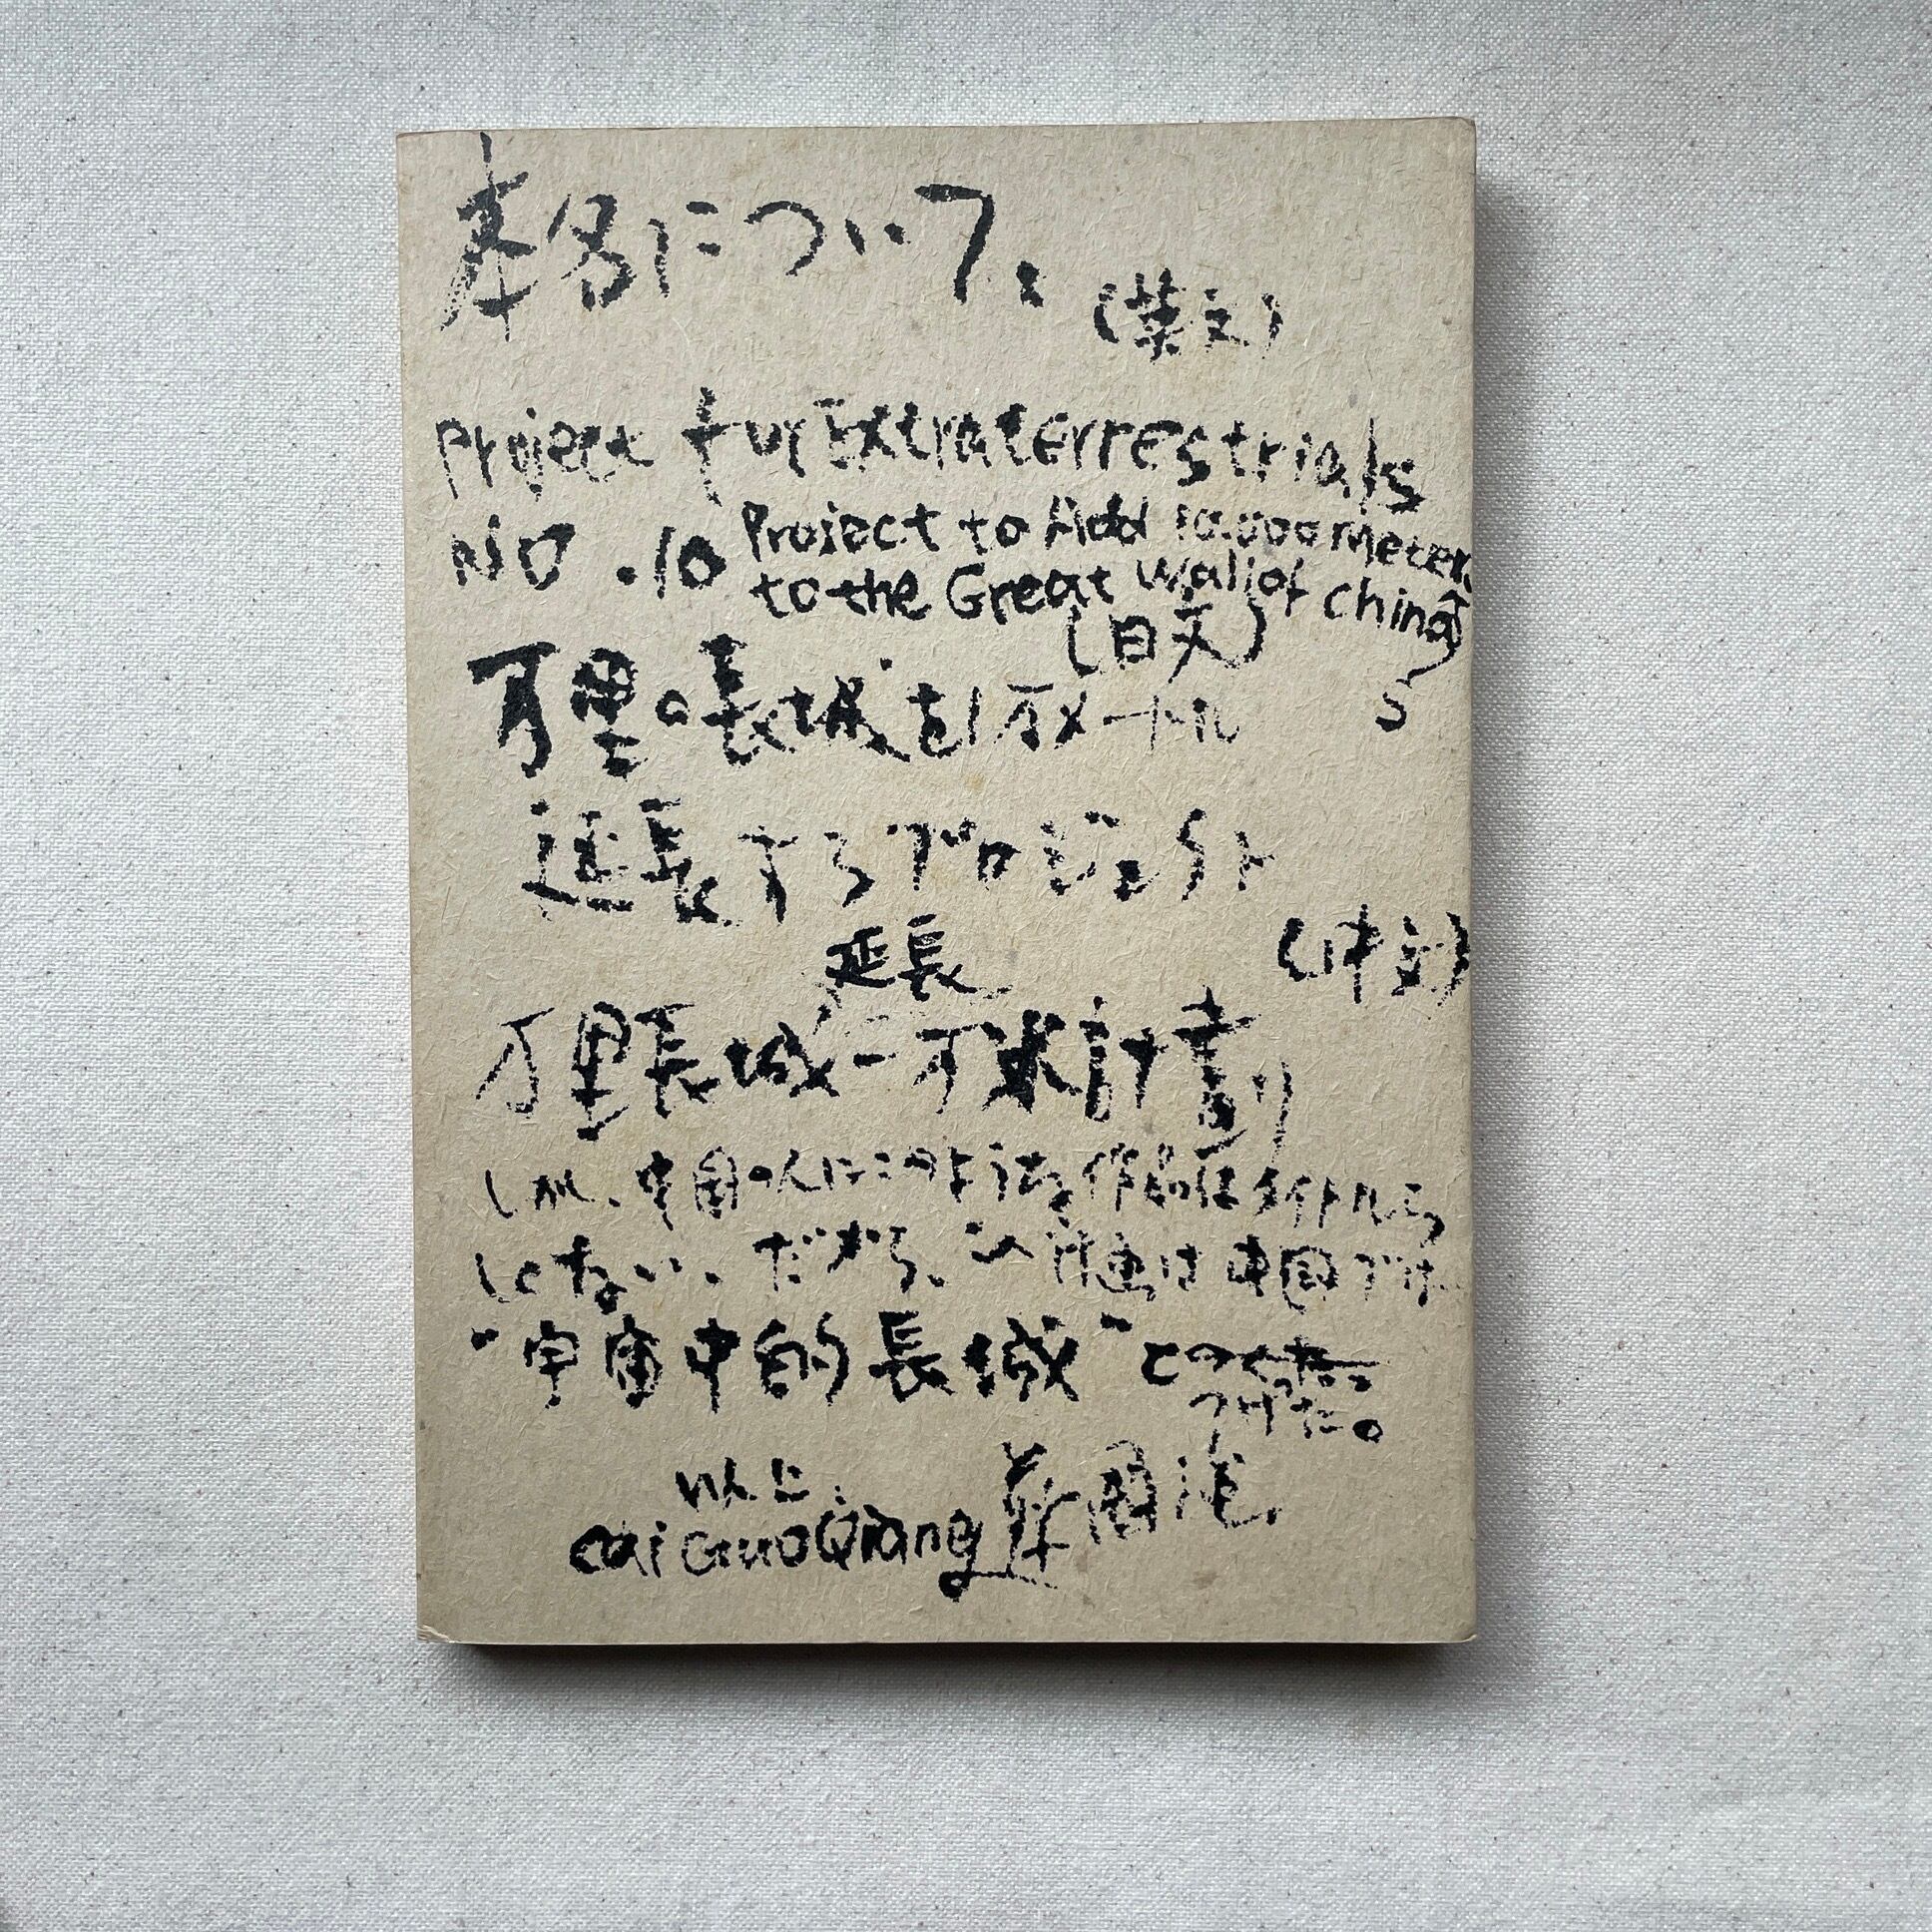 書名について.
(英文)
Project fur Extraterrestrials
No .10 Project to Add 10.000 meters
to the Great Wall of China
(日文)
万里の長城を1万メートル
延長するプロジェクト
(中文)
延長
万里長城一万米計劃
しかし、中国の人はこのような作品はタイトルら
しくない、だから、この計画は中国では
"宇宙中的長城"と
つけた。
以上.
Cai GuoQiang 蔡國強